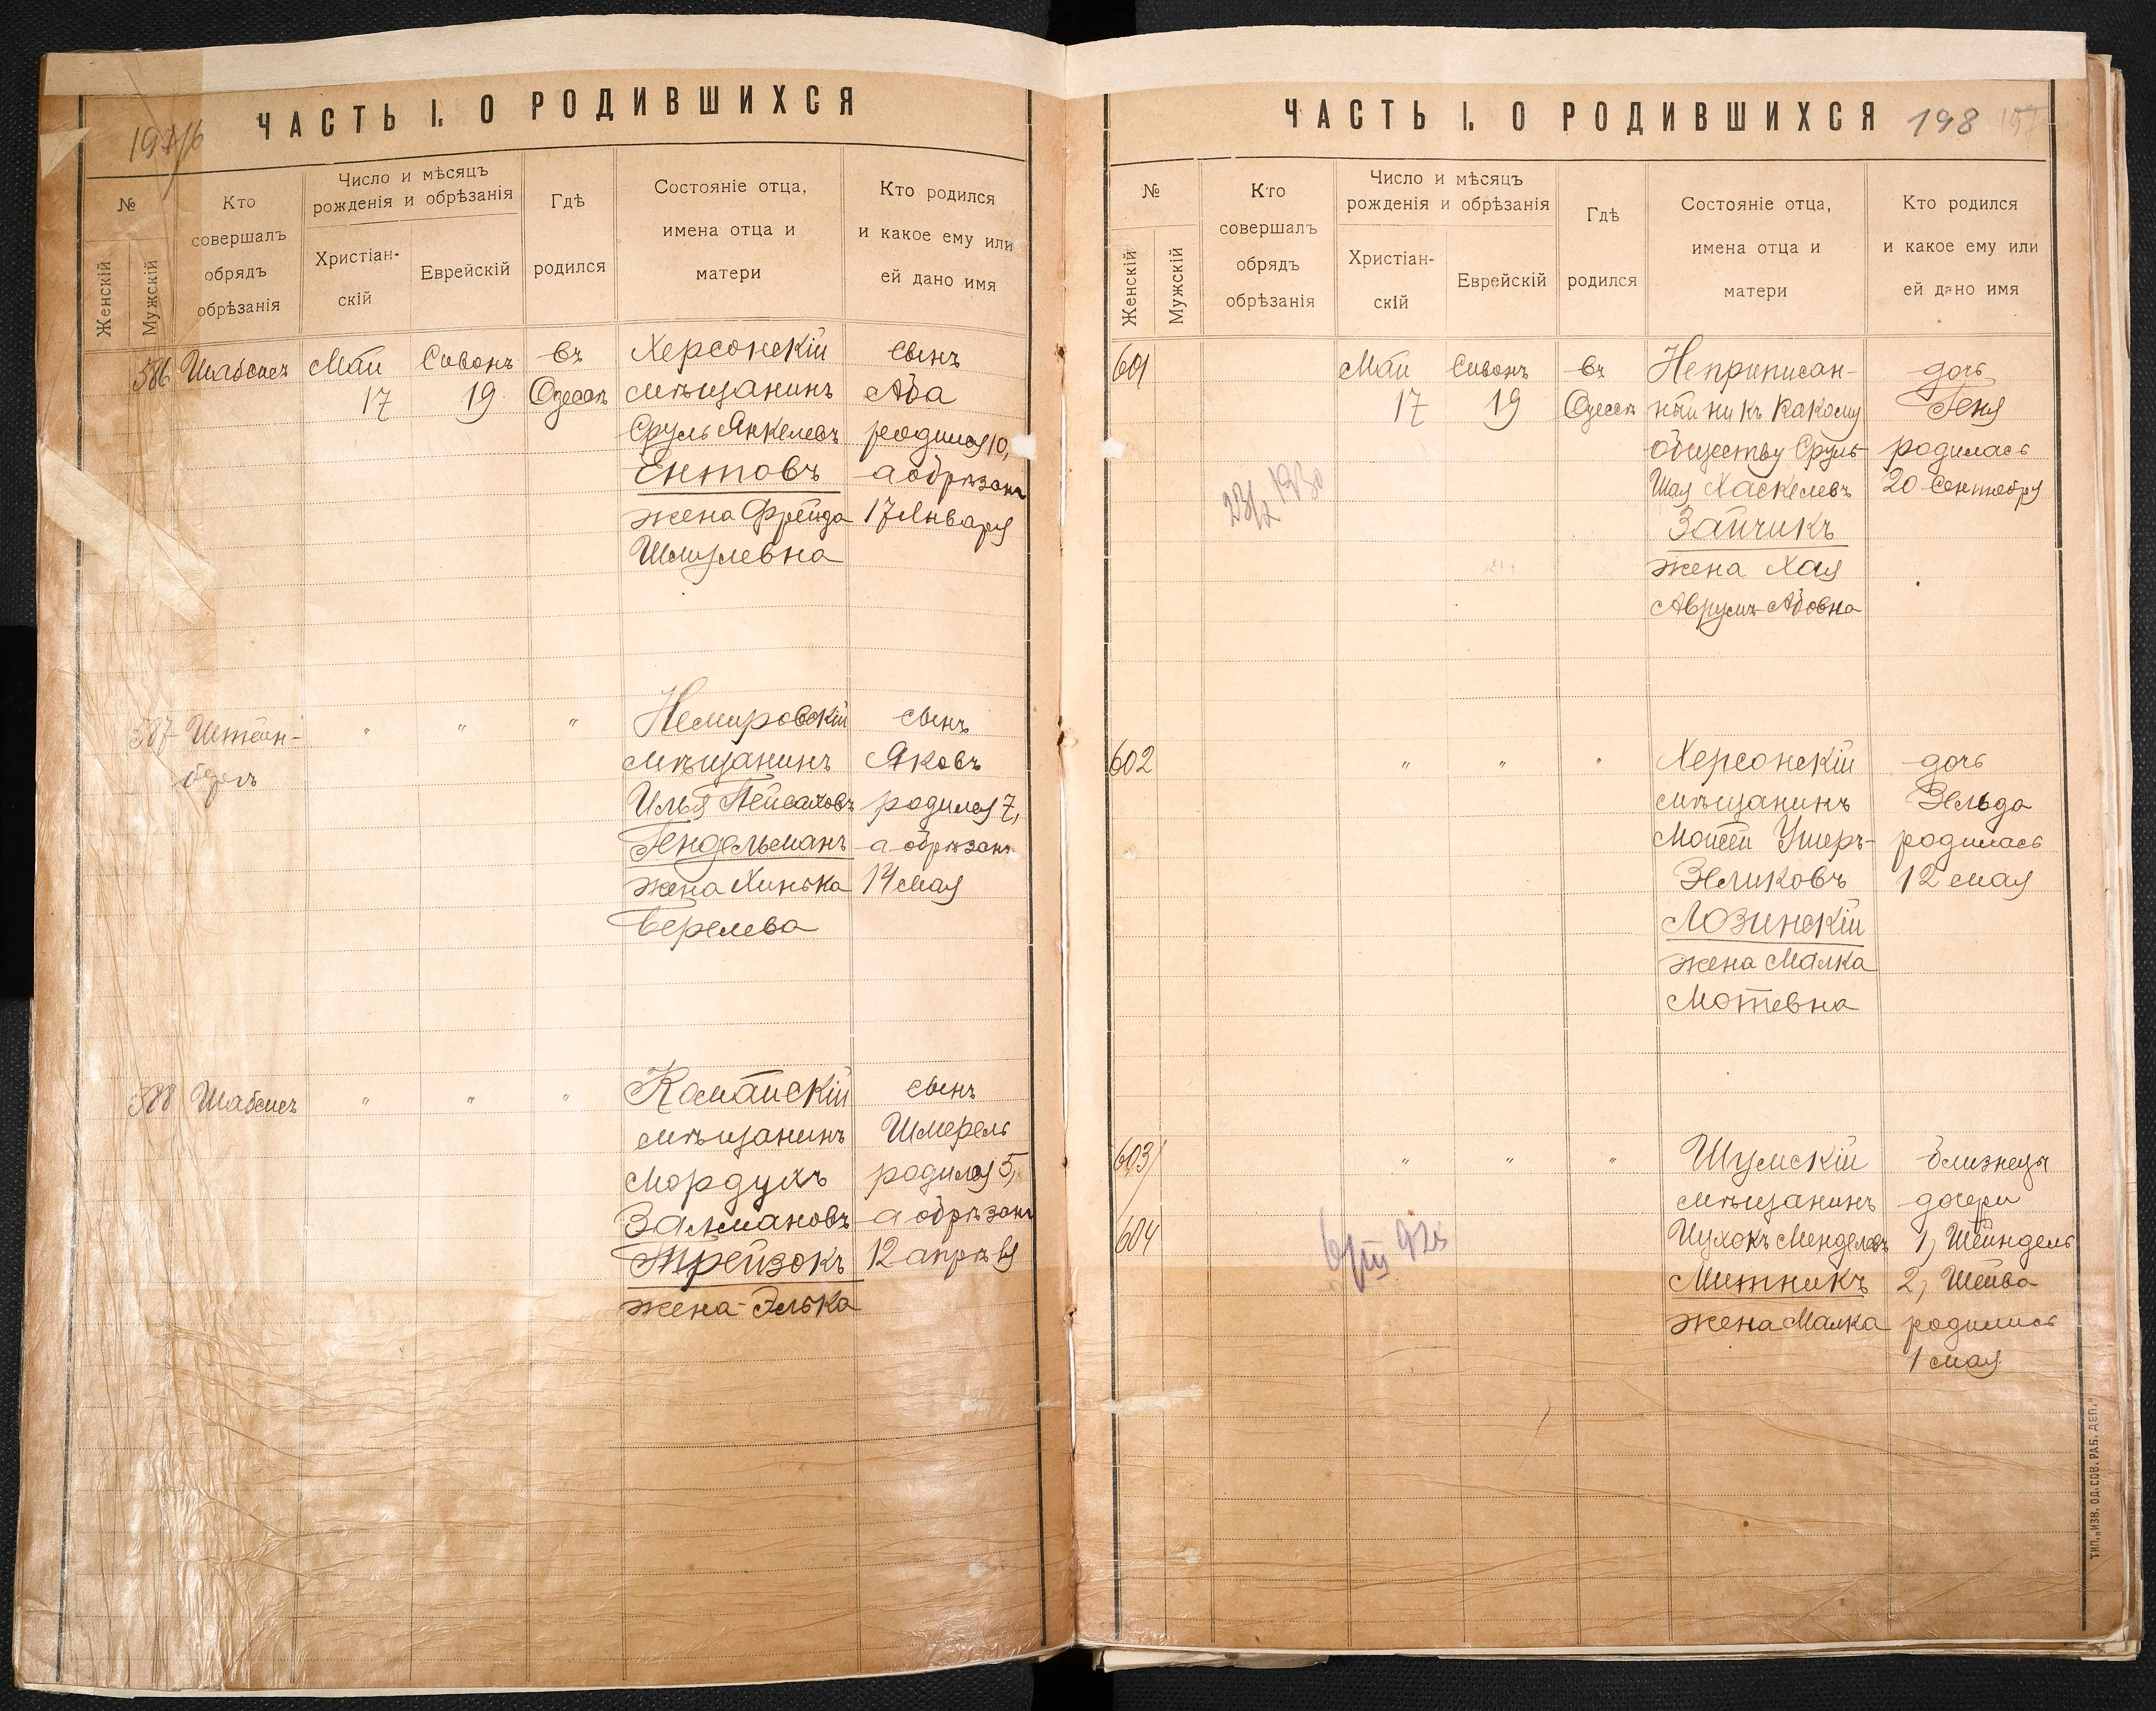 ЧАСТЬ I. О РОДИВШИХСЯ
№
Женскій
Мужскій
Кто
совершалъ
обрядъ
обрѣзанія
Число и мѣсяцъ
рожденія и обрѣзанія
Христіан-
скій
Еврейскій
Гдѣ
родился
Состояніе отца,
имена отца и
матери
Кто родился
и какое ему или
ей дано имя
586 Шабсисъ Май Сивонъ въ Херсонскій сынъ
17 19 Одессѣ мѣщанинъ Аба
Сруль Янкелевъ родился 10,
Ентовъ а обрѣзанъ
жена Фрейда 17 Января
Шмулевна
587 Штейн- " " " Немировскій сынъ
мѣщанинъ Яковъ
Илья Пейсаховъ родился 7,
Гендельманъ а обрѣзанъ
жена Хинька 14 мая
Берелева
588 Шабсисъ " " " Романскій сынъ
мѣщанинъ Шмерель
Мордухъ родился 5,
Залмановъ а обрѣзанъ
Трейзокъ 12 апрѣля
жена Элька
ЧАСТЬ I. О РОДИВШИХСЯ 198
№
Женскій
Мужскій
Кто
совершалъ
обрядъ
обрѣзанія
Число и мѣсяцъ
рожденія и обрѣзанія
Христіан-
скій
Еврейскій
Гдѣ
родился
Состояніе отца,
имена отца и
матери
Кто родился
и какое ему или
ей дано имя
601 Май Сивонъ въ Неприписан- дочь
17 19 Одессѣ ный ни къ какому Геня
обществу Сруль- родилась
Шая Хаскелевъ 20 Сентября
Зайчикъ
жена Хая
Аврумъ-Абовна
602 " " " Херсонскій дочь
мѣщанинъ Зельда
Мойсей Ушеръ- родилась
Зеликовъ 12 мая
Лозинскій
жена Малка
Мотевна
603/ " " " Шумскій близнецы
мѣщанинъ дочери
604 Менделевъ 1, Шейндель
Митникъ 2, Шейва
жена Малка родились
1 мая
ТИП. „ИЗВ. ОД. СОВ. РАБ. ДЕП.“